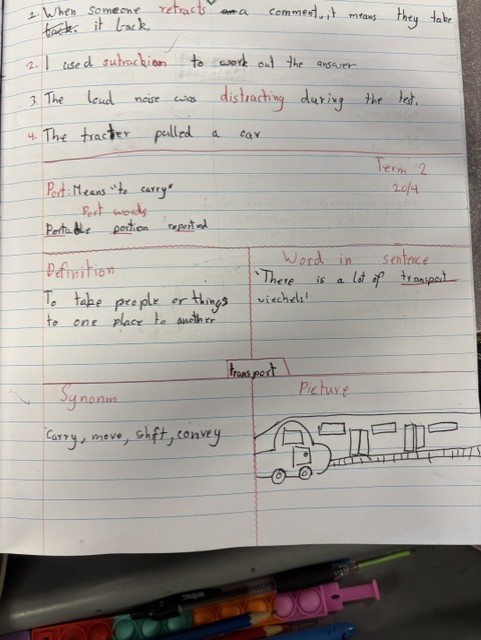 2. When someone retracts a comment, it means they take
it back.
2. I used sutrackion to work out the answer
3. The loud noise was distracting during the test.
4. The tracter pulled a car
Term 2
20/4
Port: Means "to carry"
Port words
Portable portion reported
Definition
To take people or things
to one place to another
Word in sentence
"There is a lot of transport
viechels'
transport
Synonm
Carry, move, shft, convey
Picture